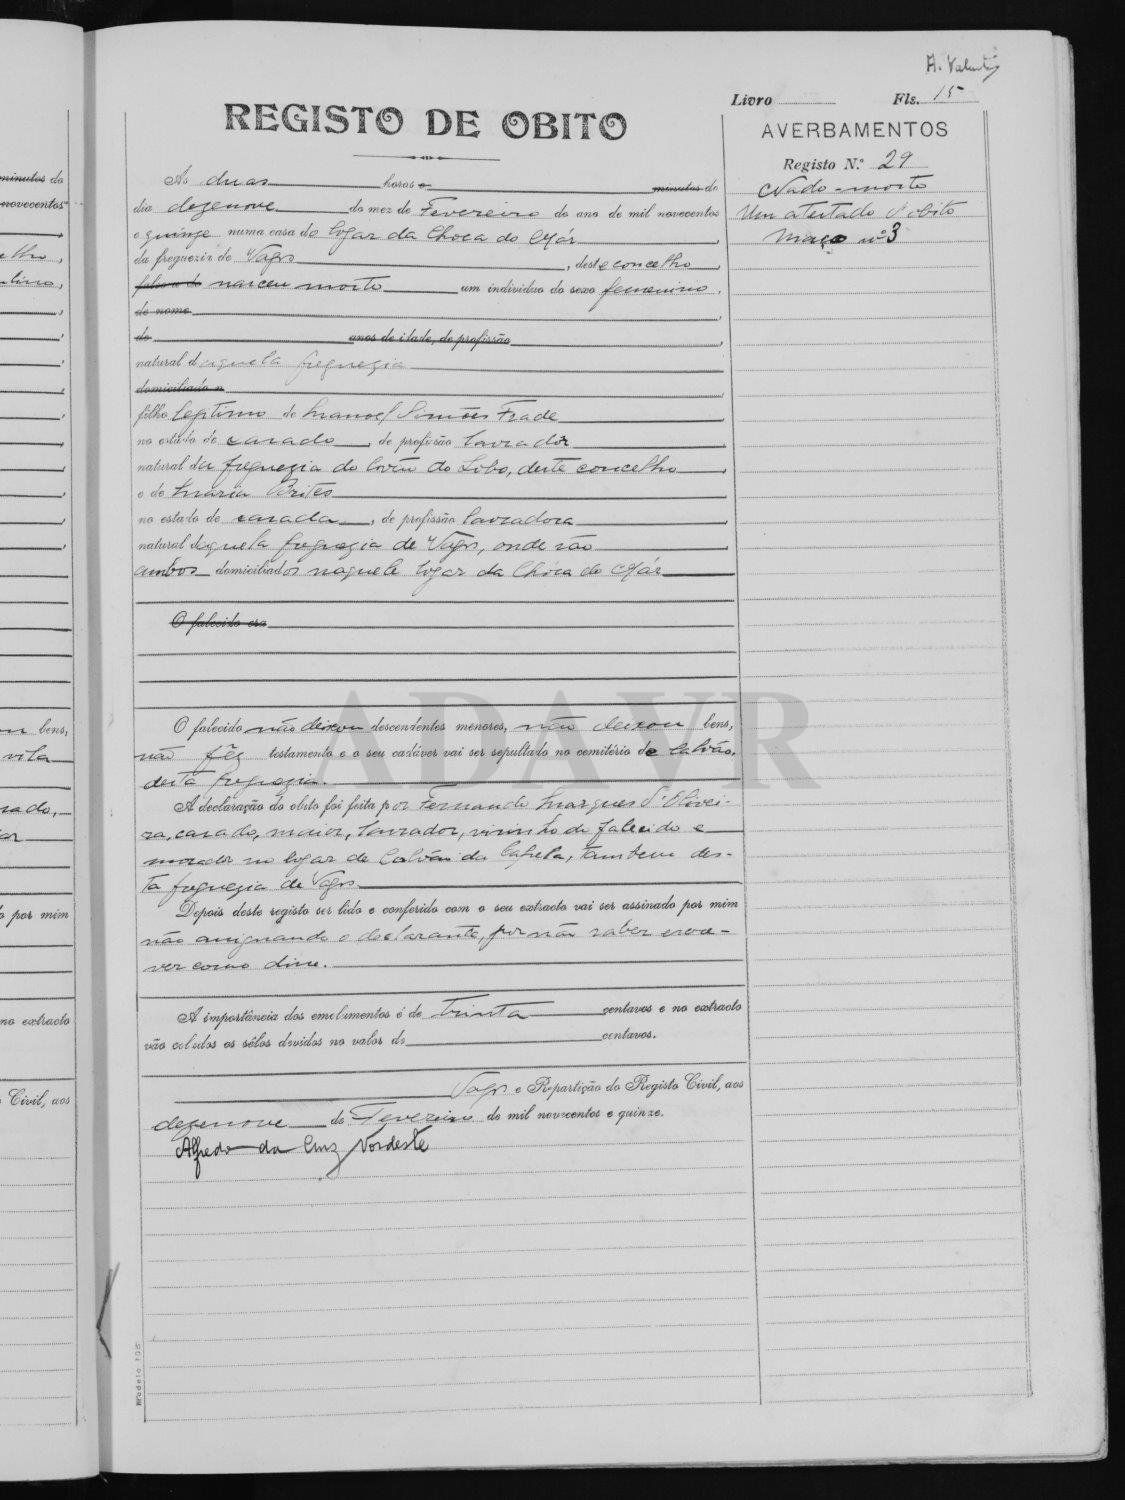 Livro Fls. 15
REGISTO DE OBITO
AVERBAMENTOS
Registo N.º 29
Nado-morto
Um atestado d'obito
Maço nº 3
Ás duas horas e minutos do
dia dezenove do mez de Fevereiro do ano de mil novecentos
e quinze numa casa do logar da Choca do Már,
da freguezia de Vagos, deste concelho,
faleceu de nasceu morto um individuo do sexo femenino,
de nome
de anos de idade, de profissão
natural daquela freguezia
domiciliado n
filho legitimo de Manoel Simões Frade
no estado de casado, de profissão lavrador
natural da freguezia de Covão do Lobo, deste concelho
e de Maria Brites
no estado de casada, de profissão lavradora
natural daquela freguezia de Vagos, onde são
ambos domiciliados naquele logar da Chóca do Már
O falecido era
O falecido não deixou descendentes menores, não deixou bens,
não fêz testamento e o seu cadáver vai ser sepultado no cemitério de Calvão,
desta freguezia.
A declaração do obito foi feita por Fernando Marques d'Olivei-
ra, casado, maior, lavrador, visinho do falecido e
morador no logar de Calvão da Capela, tambem des-
ta freguezia de Vagos.
Depois deste registo ser lido e conferido com o seu extracto vai ser assinado por mim
não assignando o declarante, por não saber escre-
ver como disse.
A importância dos emolumentos é de trinta centavos e no extracto
vão colados os sêlos devidos no valor de centavos.
Vagos e Repartição do Registo Civil, aos
dezenove de Fevereiro de mil novecentos e quinze.
Alfredo da Cruz Nordeste
Modelo 106
ADAVR
minutos do
novecentos
bens,
vila
por mim
no extracto
Civil, aos